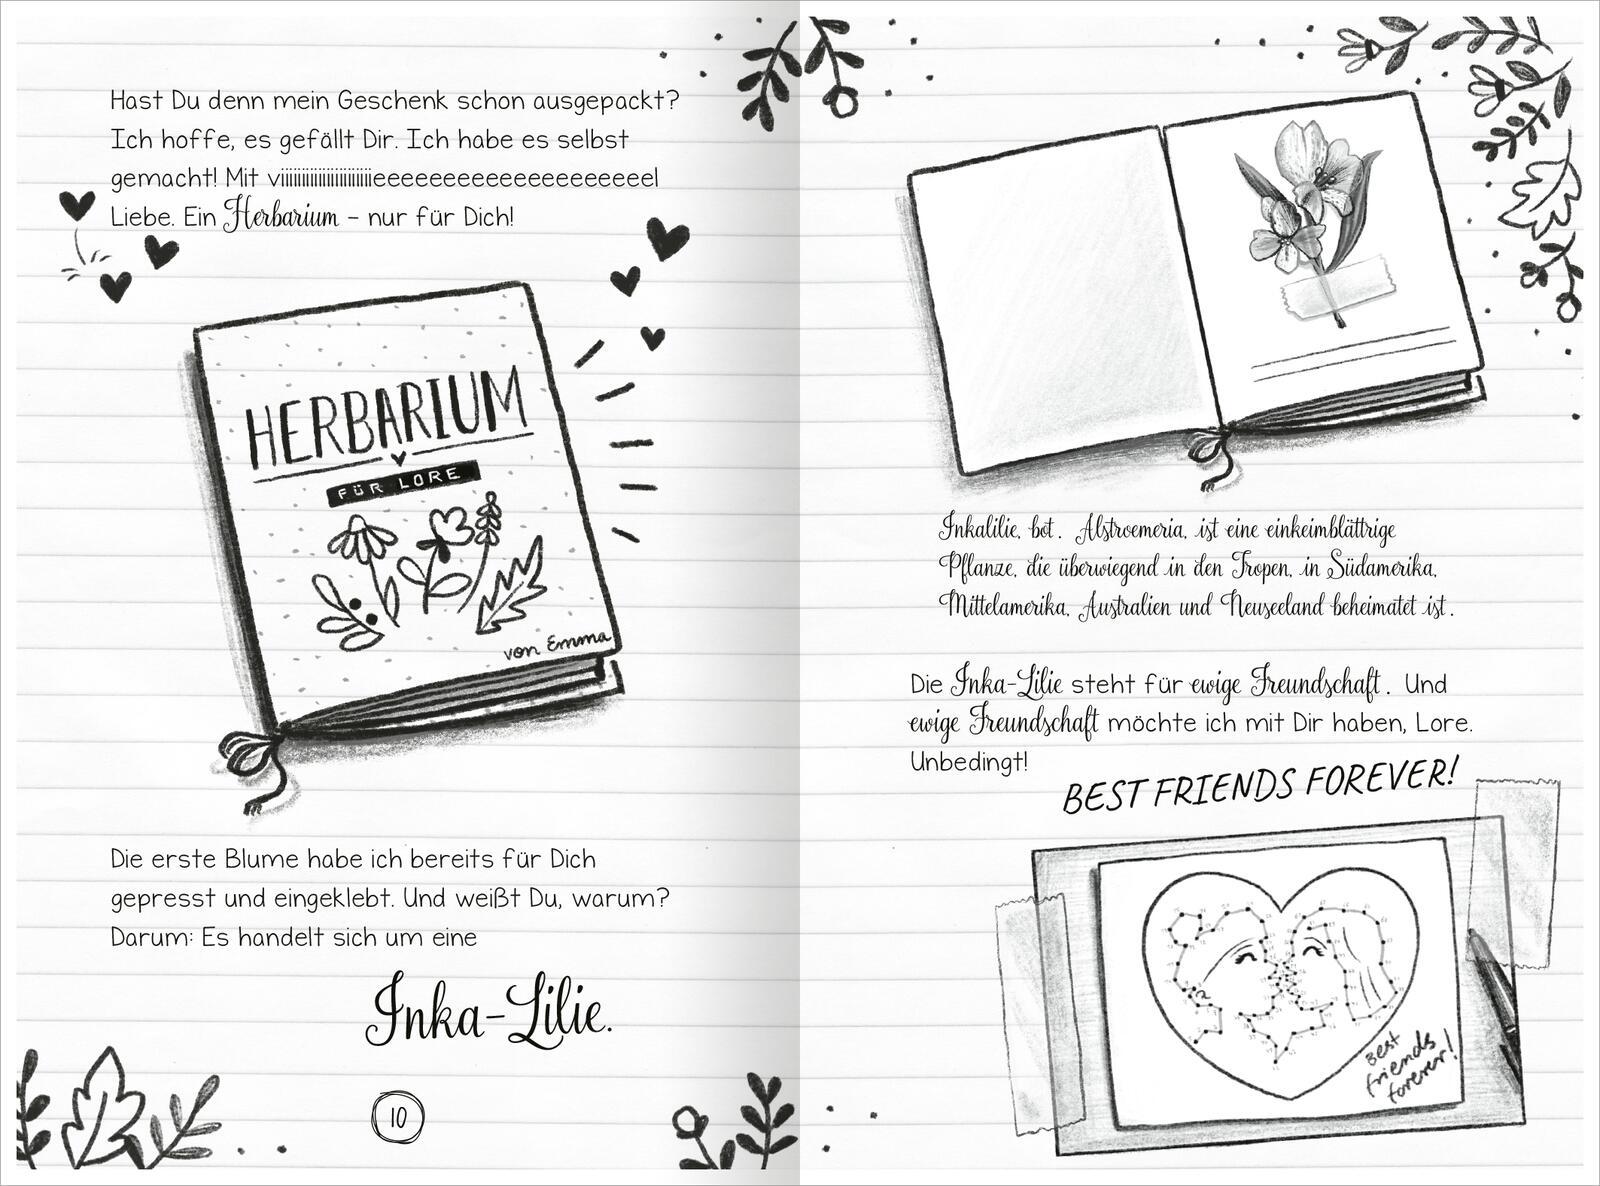 Hast Du denn mein Geschenk schon ausgepackt?
Ich hoffe, es gefällt Dir. Ich habe es selbst
gemacht! Mit viiiiiiiiiiiiiiiiiiiiiieeeeeeeeeeeeeeeeeeeel
Liebe. Ein Herbarium – nur für Dich!
HERBARIUM
FÜR LORE
von Emma
Die erste Blume habe ich bereits für Dich
gepresst und eingeklebt. Und weißt Du, warum?
Darum: Es handelt sich um eine
Inka-Lilie.
10
Inkalilie, bot. Alstroemeria, ist eine einkeimblättrige
Pflanze, die überwiegend in den Tropen, in Südamerika,
Mittelamerika, Australien und Neuseeland beheimatet ist.
Die Inka-Lilie steht für ewige Freundschaft. Und
ewige Freundschaft möchte ich mit Dir haben, Lore.
Unbedingt!
BEST FRIENDS FOREVER!
Best
friends
forever!